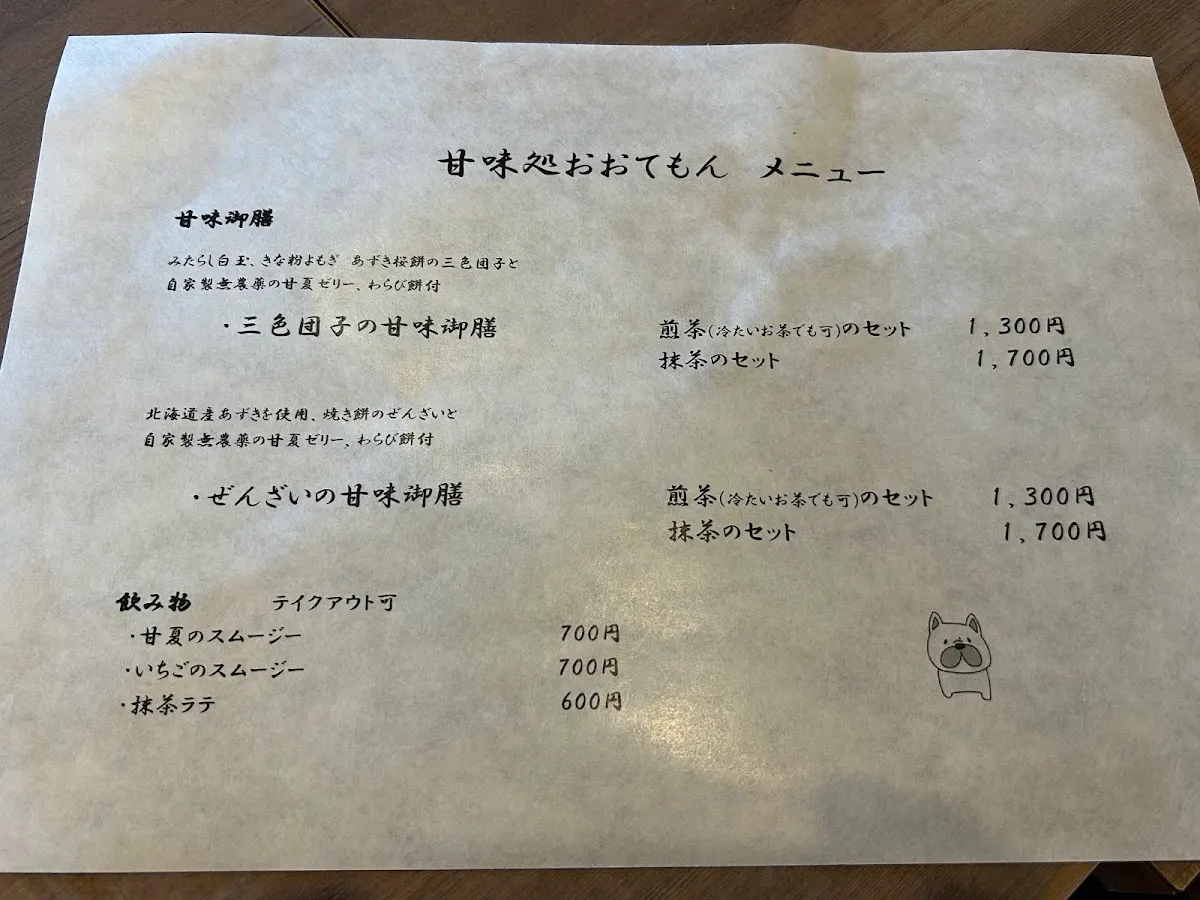 甘味処おおてもん　メニュー
甘味御膳
みたらし白玉、きな粉よもぎ　あずき桜餅の三色団子と
自家製無農薬の甘夏ゼリー、わらび餅付
・三色団子の甘味御膳　煎茶(冷たいお茶でも可)のセット　1,300円
抹茶のセット　1,700円
北海道産あずきを使用、焼き餅のぜんざいと
自家製無農薬の甘夏ゼリー、わらび餅付
・ぜんざいの甘味御膳　煎茶(冷たいお茶でも可)のセット　1,300円
抹茶のセット　1,700円
飲み物　テイクアウト可
・甘夏のスムージー　700円
・いちごのスムージー　700円
・抹茶ラテ　600円